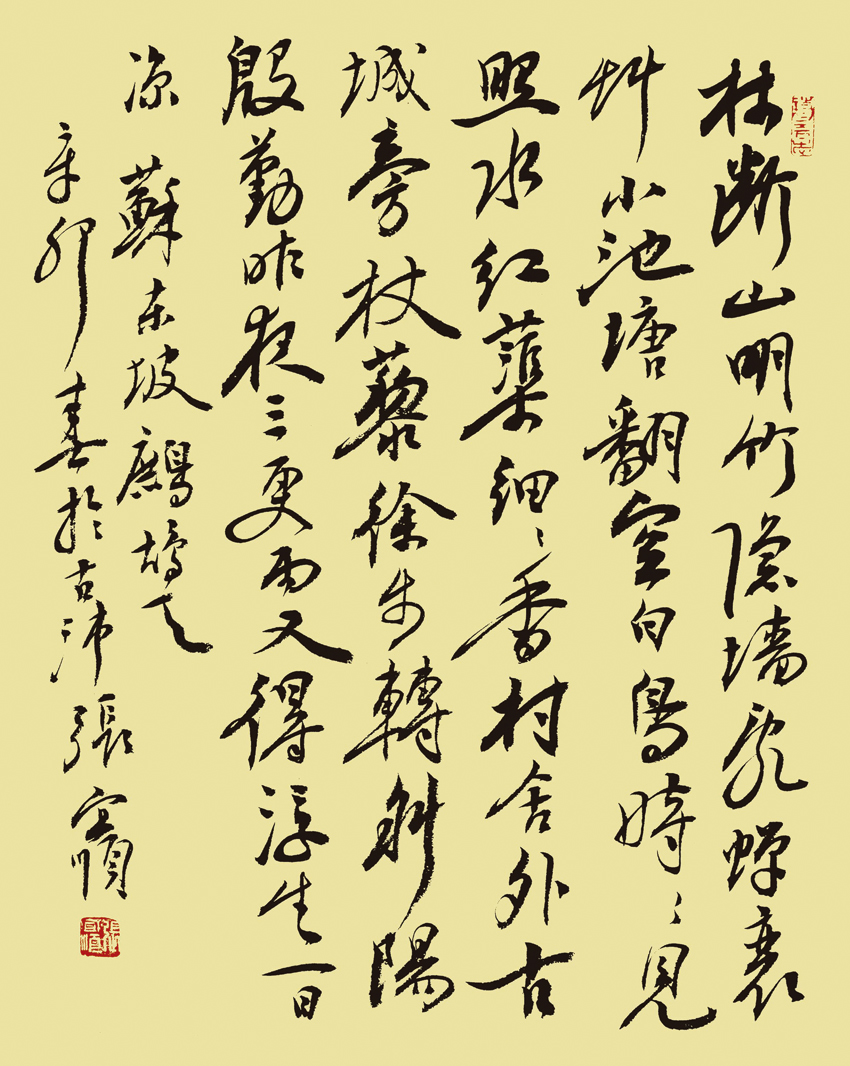 林断山明竹隐墙乱蝉衰
艸小池塘翻空白鳥時〻見
照水红蕖细〻香村舍外古
城旁杖藜徐步轉斜陽
殷勤昨夜三更雨又得浮生一日
凉 蘇東坡鷓鴣天
辛卯春於古沛張宜順